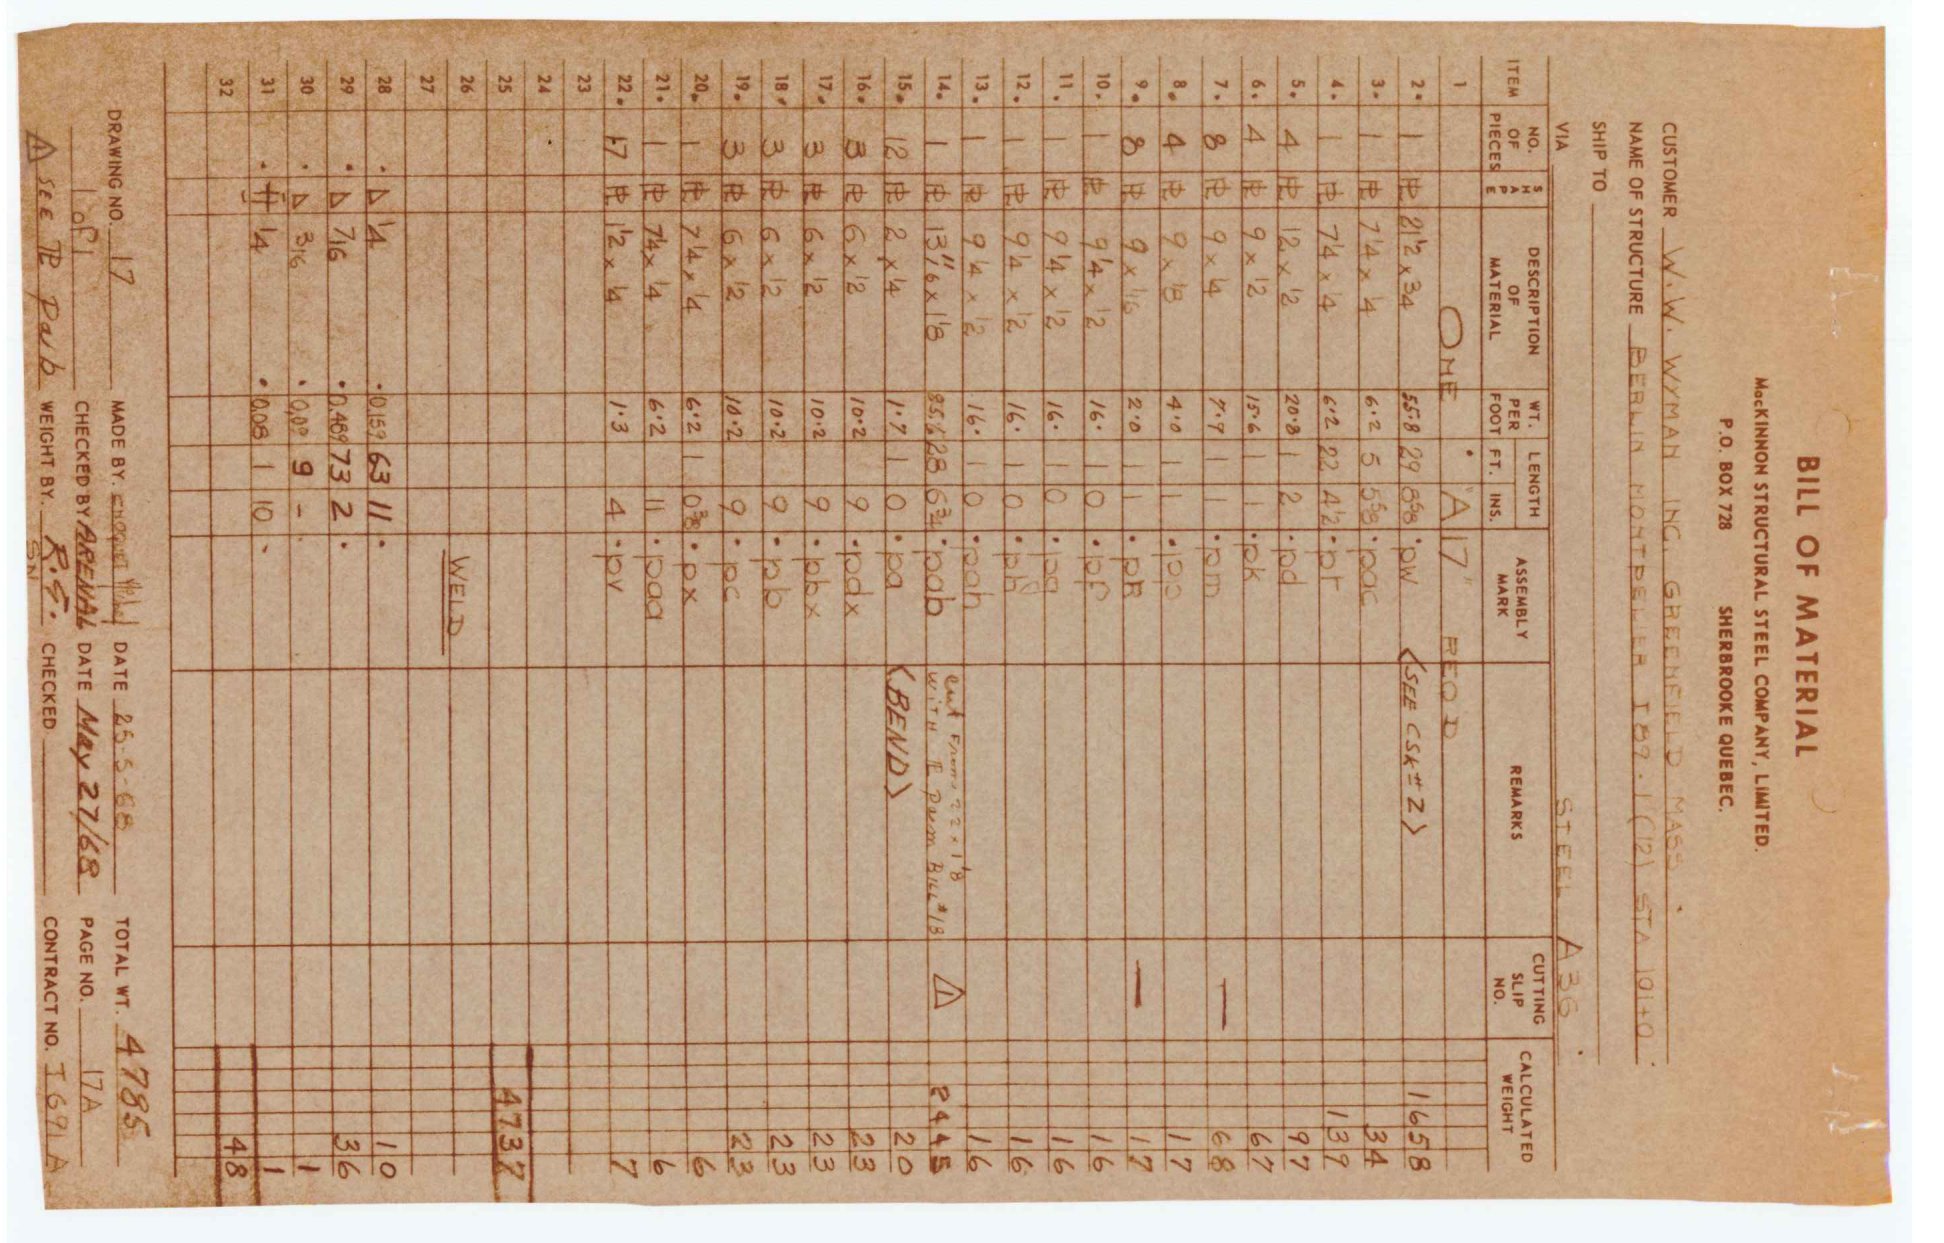 BILL OF MATERIAL
MacKINNON STRUCTURAL STEEL COMPANY, LIMITED.
P.O. BOX 728 SHERBROOKE QUEBEC.
CUSTOMER W.W. WYMAN INC. GREENFIELD MASS.
NAME OF STRUCTURE BERLIN MONTPELIER I 89-1(12) STA 101+0
SHIP TO
VIA STEEL A36
ITEM NO. OF PIECES SHAPE DESCRIPTION OF MATERIAL WT. PER FOOT LENGTH FT. INS. ASSEMBLY MARK REMARKS CUTTING SLIP NO. CALCULATED WEIGHT
1 ONE "A17" REQD
2. 1 PL 21 1/2 x 3/4 55.8 29 8 5/8 pw <SEE CSK # 2> 1658
3. 1 PL 7 1/4 x 1/4 6.2 5 5 5/8 pac 34
4. 1 PL 7 1/4 x 1/4 6.2 22 4 1/2 pr 139
5. 4 PL 12 x 1/2 20.8 1 2 pd 97
6. 4 PL 9 x 1/2 15.6 1 1 pk 67
7. 8 PL 9 x 1/4 7.7 1 1 pm — 68
8. 4 PL 9 x 1/8 4.0 1 1 pp 17
9. 8 PL 9 x 1/16 2.0 1 1 pn — 17
10. 1 PL 9 1/4 x 1/2 16. 1 0 pf 16
11. 1 PL 9 1/4 x 1/2 16. 1 0 pg 16
12. 1 PL 9 1/4 x 1/2 16. 1 0 ph 16
13. 1 PL 9 1/4 x 1/2 16. 1 0 pah 16
14. 1 PL x 1 1/8 28 6 3/4 pab cut from 22 x 1 1/8 with PL from Bill #18 △ 2445
15. 12 PL 2 x 1/4 1.7 1 0 pa <BEND> 20
16. 3 PL 6 x 1/2 10.2 9 pdx 23
17. 3 PL 6 x 1/2 10.2 9 pbx 23
18. 3 PL 6 x 1/2 10.2 9 pb 23
19. 3 PL 6 x 1/2 10.2 9 pc 23
20. 1 PL 7 1/4 x 1/4 6.2 1 0 3/8 px 6
21. 1 PL 7 1/4 x 1/4 6.2 11 paa 6
22. 17 PL 1 1/2 x 1/4 1.3 4 pv 7
23
24
25 4737
26 WELD
27
28 △ 1/4 0.159 63 11 10
29 △ 7/16 0.489 73 2 36
30 △ 3/16 0.09 9 - 1
31 1/4 0.08 1 10 1
32 48
DRAWING NO. 17 MADE BY DATE 25-5-68 TOTAL WT. 4785
1 of 1 CHECKED BY ARENAL DATE May 27/68 PAGE NO. 17A
△ SEE PL pab WEIGHT BY. R.G. CHECKED CONTRACT NO. I691A